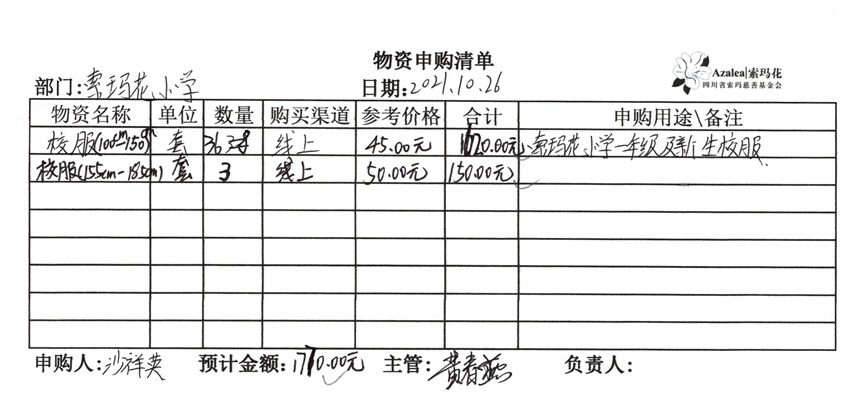 物资申购清单
Azalea|索玛花
四川省索玛慈善基金会
部门:索玛花小学 日期:2021.10.26
物资名称 单位 数量 购买渠道 参考价格 合计 申购用途\备注
校服(100cm-150cm) 套 36 线上 45.00元 1620.00元 索玛花小学一年级及新生校服
校服(155cm-185cm) 套 3 线上 50.00元 150.00元
申购人:沙祥英 预计金额:1770.00元 主管:黄春燕 负责人: